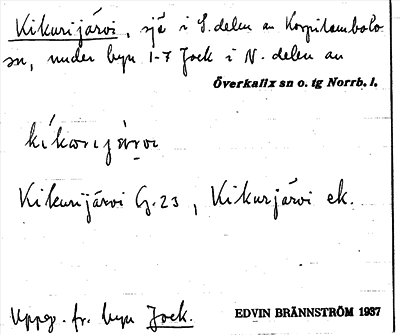 Kikurijärvi, sjö i S. delen av Korpilombolo
sn, under byn 1-7 Jock i N. delen av
Överkalix sn o. tg Norrb. l.
kíkɯrijærvi
Kikurijärvi G.23, Kikurjärvi ek.
Uppg. fr. byn Jock.
EDVIN BRÄNNSTRÖM 1937